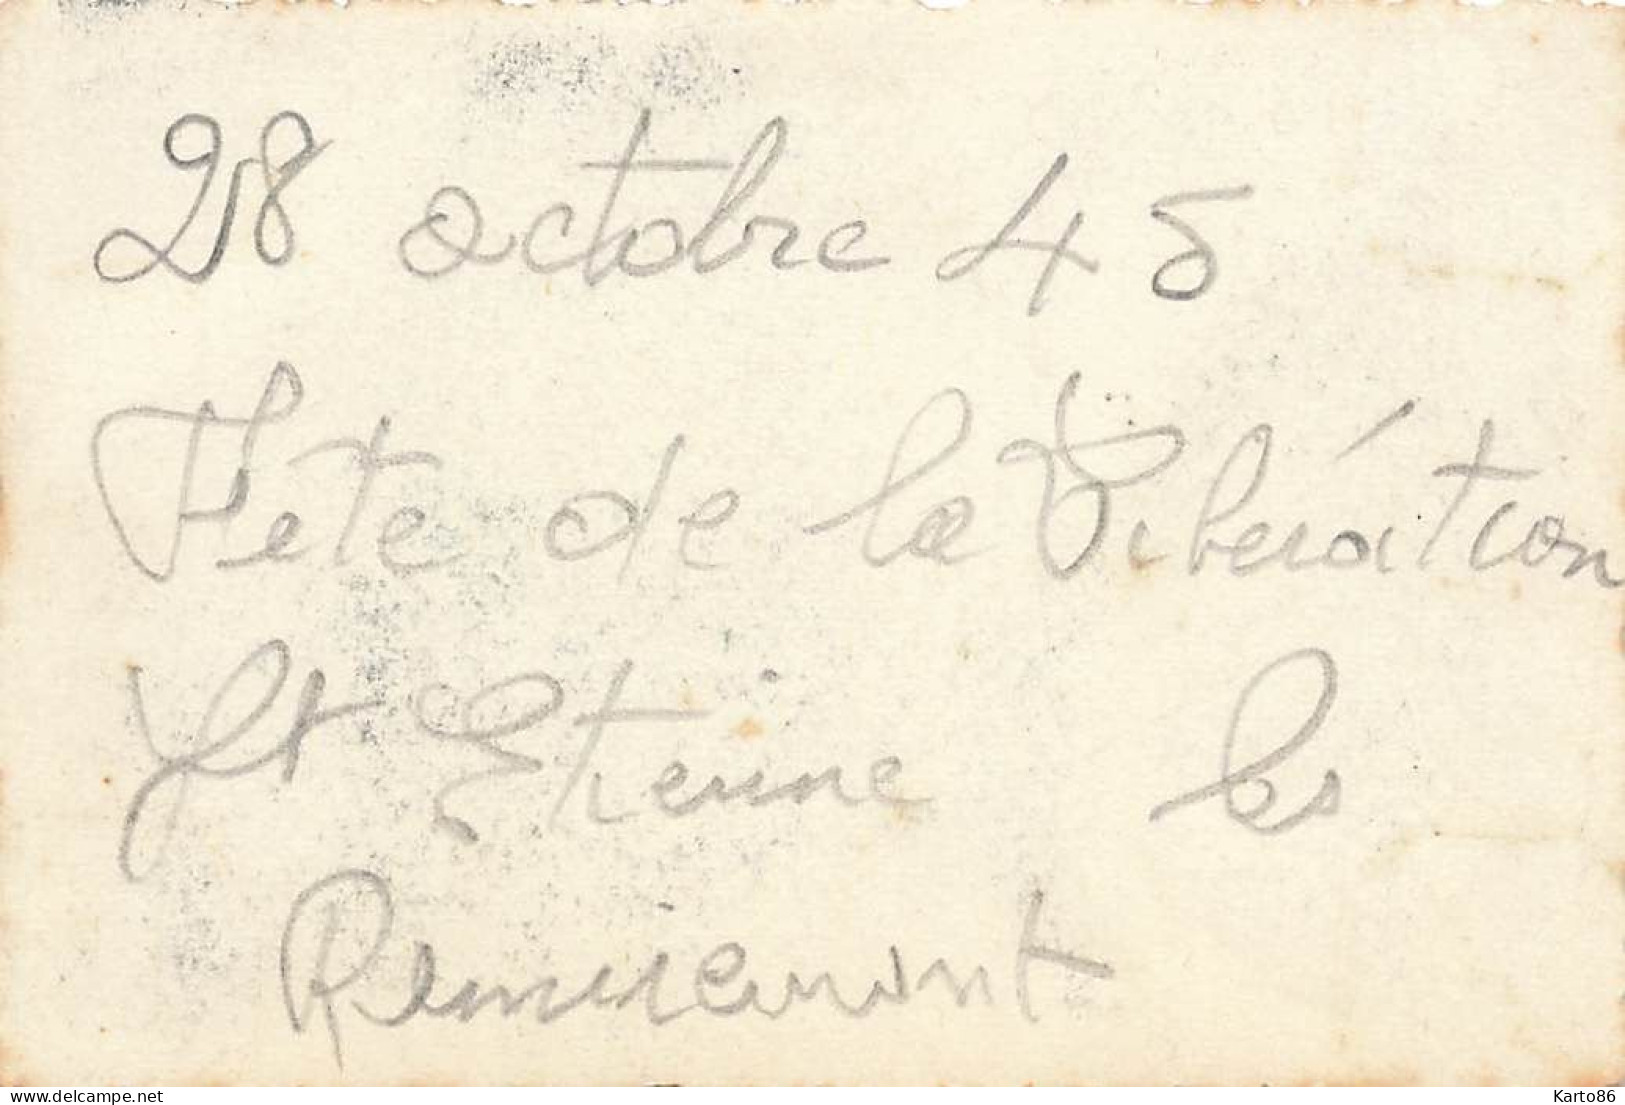 28 octobre 45
Fête de la Libération
St Etienne les
Remiremont
delcampe.net
Karto86